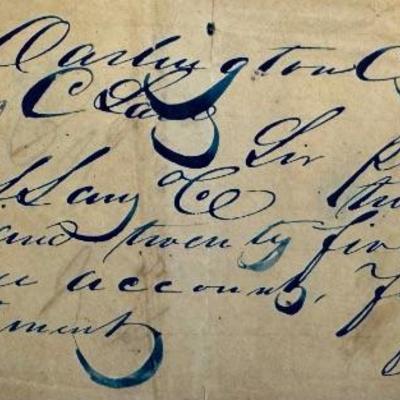 Darlington C
C Lang
Sir P
S. Lang & Co
and twenty five
account, f
tment.